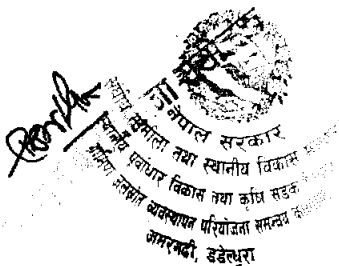 नेपाल सरकार
तथा स्थानीय विकास
स्थानीय पूर्वाधार विकास तथा कृषि सडक
जलस्रोत व्यवस्थापन परियोजना समन्वय
अमरगढी, डडेल्धुरा